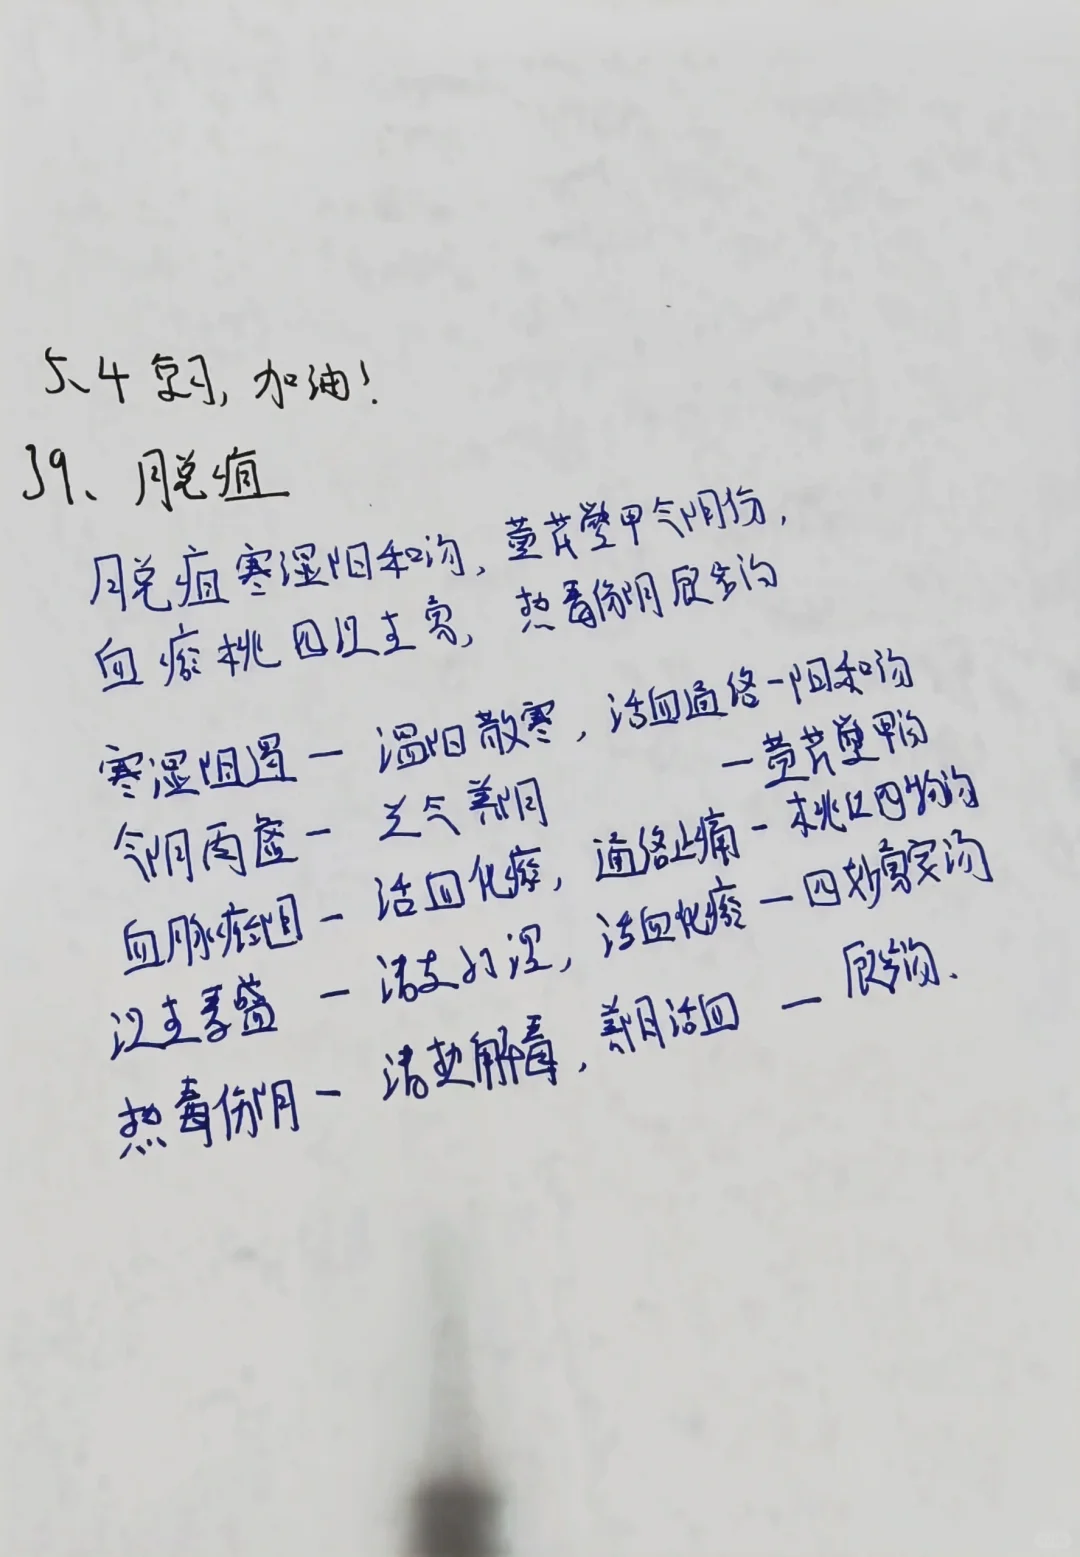 5.4 复习,加油!
39、脱疽
脱疽寒湿阳和汤,黄芪鳖甲气阴伤,
血瘀桃四汉主勇,热毒伤阴顾步汤
寒湿阻遏-温阳散寒,活血通络-阳和汤
气阴两虚-益气养阴-黄芪鳖甲汤
血脉瘀阻-活血化瘀,通络止痛-桃红四物汤
毒盛-清利湿,活血化瘀-四妙勇安汤
热毒伤阴-清热解毒,养阴活血-顾步汤.